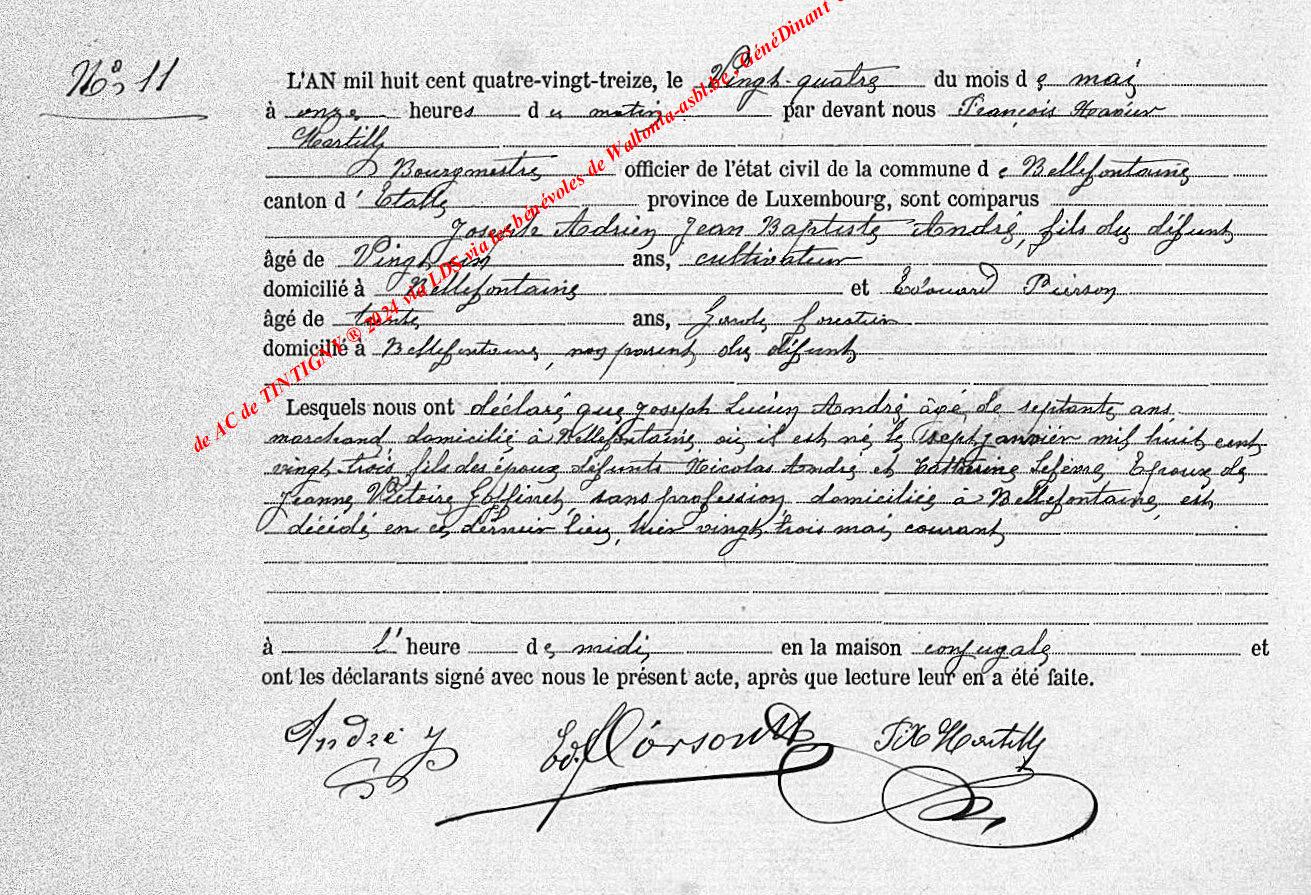 N° 11
L'AN mil huit cent quatre-vingt-treize, le Vingt-quatre du mois de mai
à onze heures du matin par devant nous François Xavier
Hartilly
Bourgmestre officier de l'état civil de la commune de Bellefontaine
canton d'Etalle province de Luxembourg, sont comparus
Joseph Adrien Jean Baptiste André, fils du défunt
âgé de Vingt un ans, cultivateur
domicilié à Bellefontaine et Edouard Pierson
âgé de trente ans, Garde forestier
domicilié à Bellefontaine, non parent du défunt
Lesquels nous ont déclaré que Joseph Lucien André, âgé de septante ans
marchand domicilié à Bellefontaine où il est né le sept janvier mil huit cent
vingt trois, fils des époux défunts Nicolas André et Catherine Lefèvre, Epoux de
Jeanne Victoire Goffinet, sans profession domiciliée à Bellefontaine, est
décédé en ce dernier lieu, hier vingt trois mai courant
à l'heure de midi en la maison conjugale et
ont les déclarants signé avec nous le présent acte, après que lecture leur en a été faite.
André J
Ed. Pierson
FX Hartilly
de AC de TINTIGNY ® 2024 via LDS via les bénévoles de Wallonia-asbl.be, GénéDinant